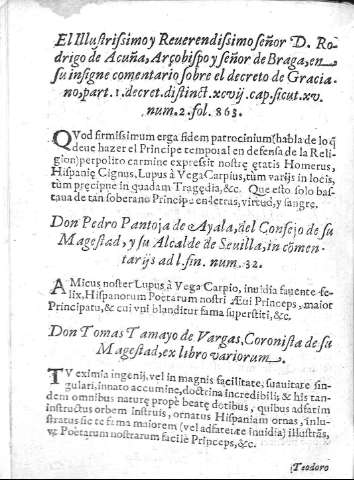 El Illustrissimo y Reuerendissimo señor D. Ro-
drigo de Acuña, Arçobispo y señor de Braga, en
su insigne comentario sobre el decreto de Gracia-
no, part. 1. decret. distinct. xcvij. cap. sicut. xv.
num. 2. fol. 863.
QVod firmissimum erga fidem patrocinium (habla de lo q̃
deue hazer el Principe temporal en defensa de la Reli-
gion) perpolito carmine expressit nostrę ętatis Homerus,
Hispanię Cignus, Lupus à Vega Carpius, tùm varijs in locis,
tùm pręcipne in quadam Tragędia, &c. Que esto solo bas-
taua de tan soberano Principe en letras, virtud, y sangre.
Don Pedro Pantoja de Ayala, del Consejo de su
Magestad, y su Alcalde de Seuilla, in cõmen-
tarijs ad l. fin. num. 32.
AMicus noster Lupus à Vega Carpio, inuidia fauente fe-
lix, Hispanorum Poetarum nostri Æui Princeps, maior
Principatu, & cui vni blanditur fama superstiti, &c.
Don Tomas Tamayo de Vargas, Coronista de su
Magestad, ex libro variorum.
TV eximia ingenij, vel in magnis facilitate, suauitate sin-
gulari, innato accumine, doctrina incredibili, & his tan-
dem omnibus naturę propè beatę dotibus, quibus adfatim
instructus orbem instruis, ornatus Hispaniam ornas, inlu-
stratus sic te fama maiorem (vel adfatente inuidia) illustrãs,
vt Poetarum nostrorum facilè Princeps, &c.
Teodoro